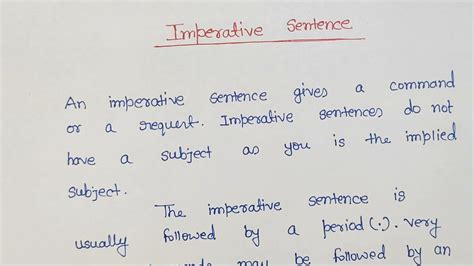 Imperative Sentence
An imperative sentence gives a command
or a request. Imperative sentences do not
have a subject as you is the implied
subject.
The imperative sentence is
usually followed by a period (.). very
may be followed by an